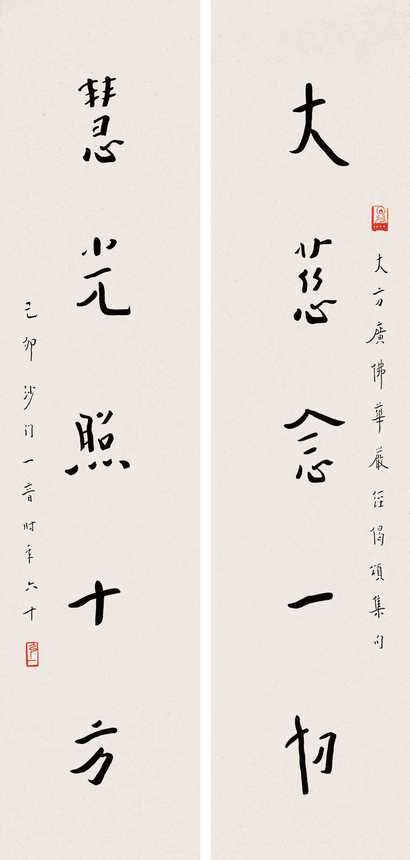 大方廣佛華嚴經偈頌集句
大慈念一切
慧光照十方
己卯沙门一音时年六十